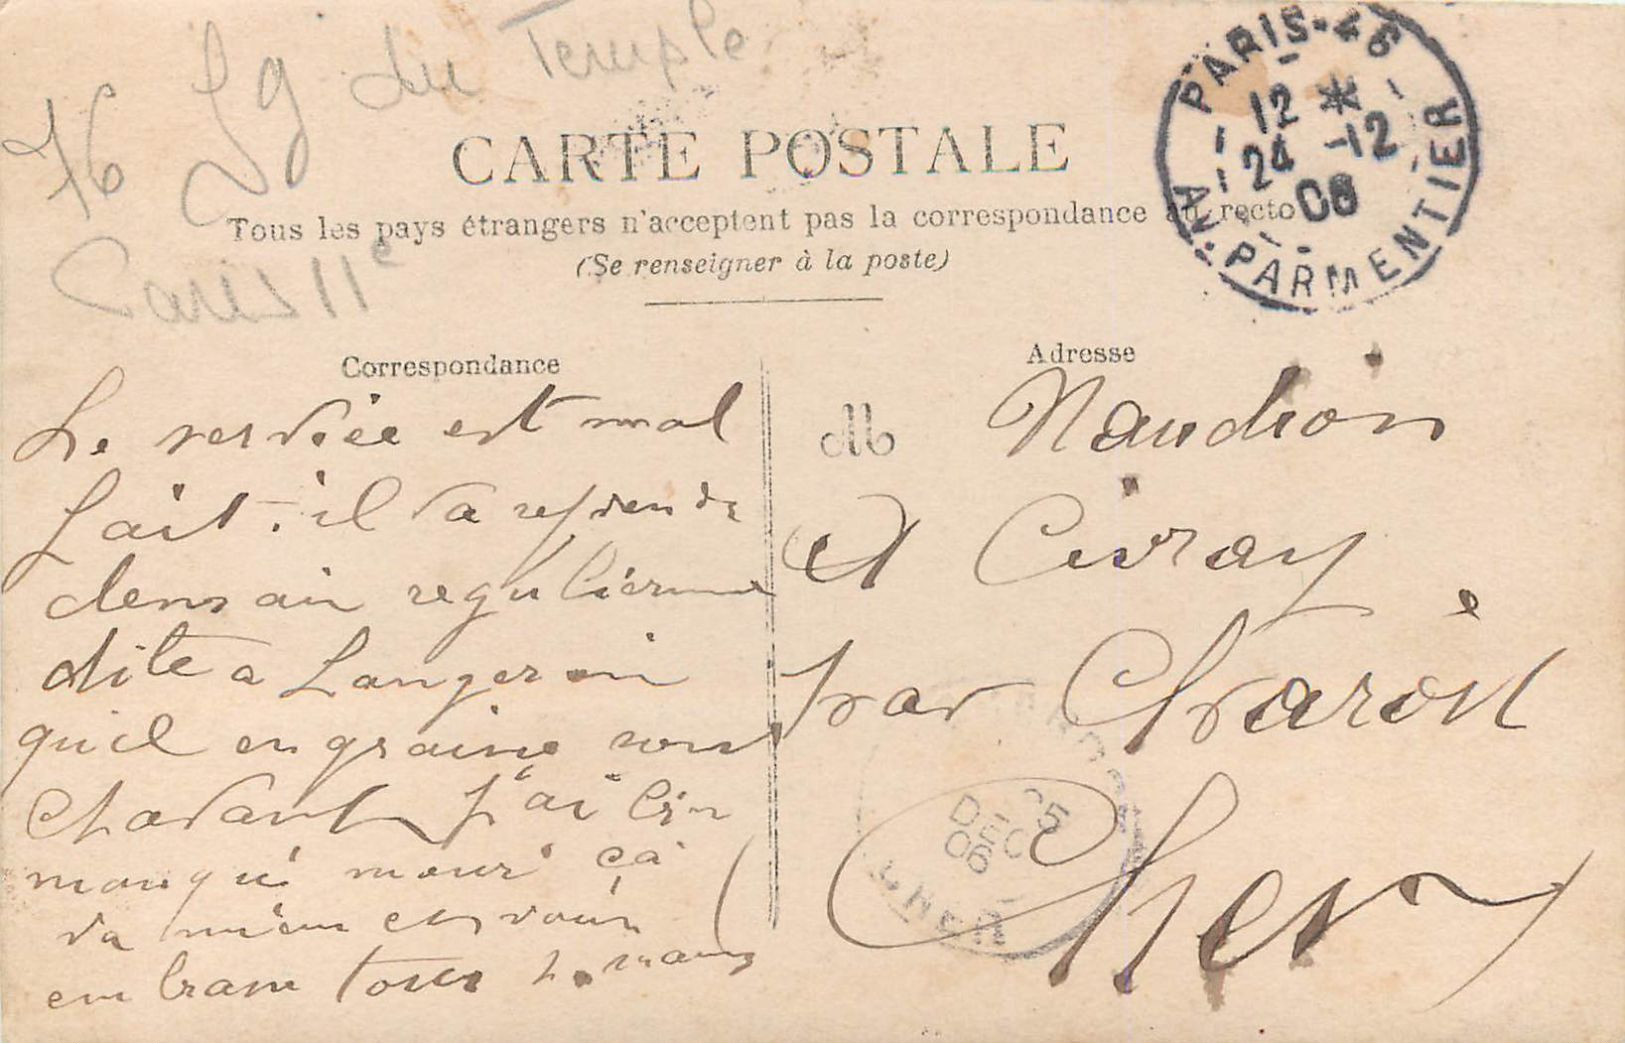 76 Fg du Temple
Paris 11e
CARTE POSTALE
Tous les pays étrangers n'acceptent pas la correspondance au recto
(Se renseigner à la poste)
PARIS-46
12 *
24 -12
06
AV. PARMENTIER
Correspondance
Le serviée est mal
fait. il va reprendr
demain regulierme
dite a Langerain
quil engraine
Chavant j'ai bin
manqué mouri ça
va mieu en vous
embran tous
Adresse
M Naudion
A Civray
par Charôst
Cher
25
DEC
06
CHER